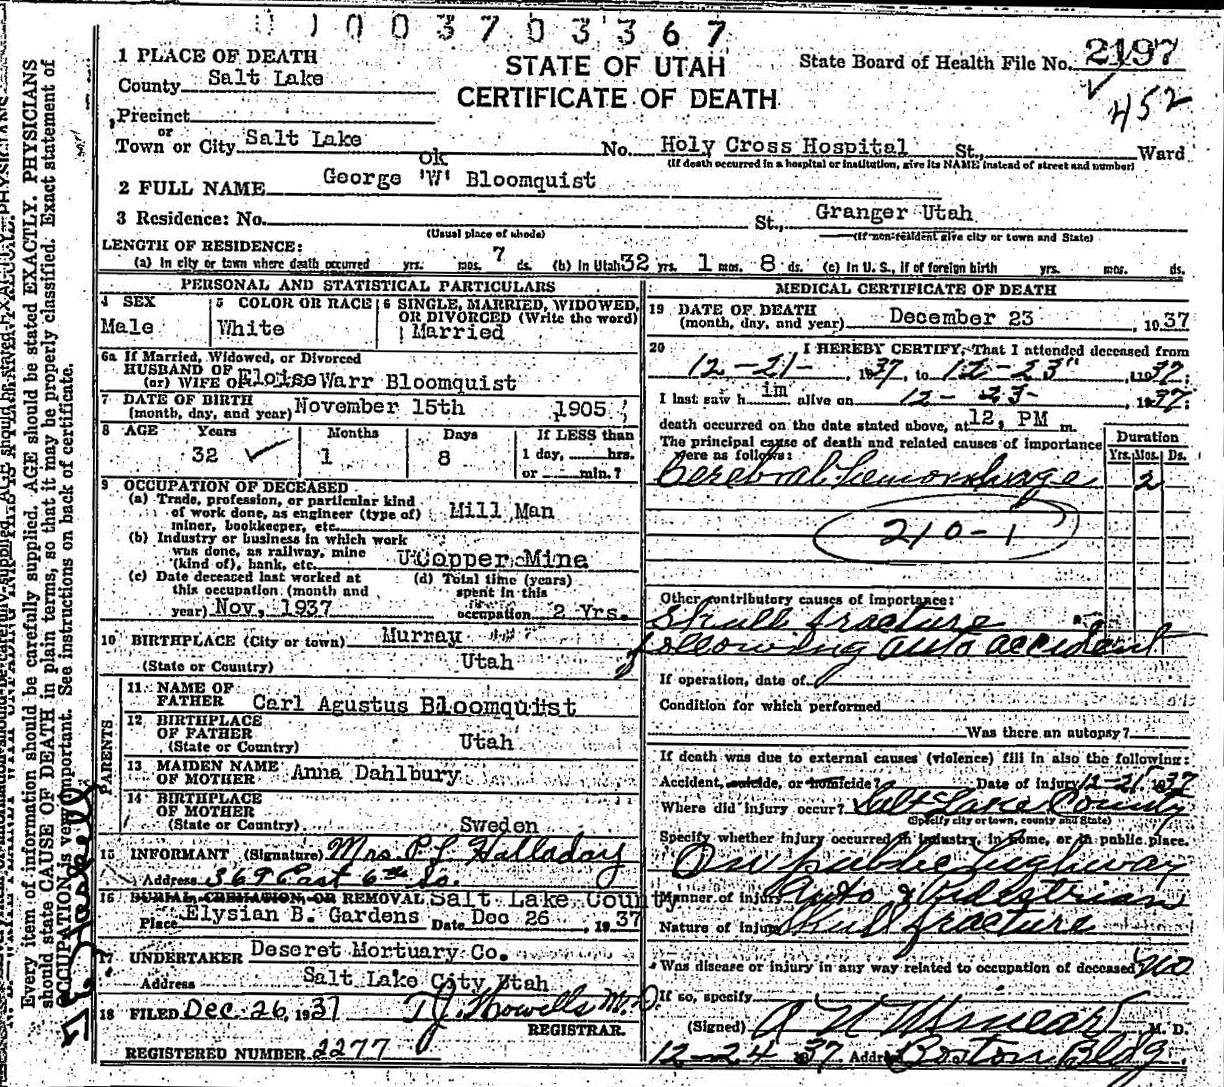 0 1 0 0 3 7 0 3 3 6 7
1 PLACE OF DEATH
County Salt Lake
STATE OF UTAH
CERTIFICATE OF DEATH
State Board of Health File No. 2197
452
Precinct
or
Town or City Salt Lake No. Holy Cross Hospital St., Ward
(If death occurred in a hospital or institution, give its NAME instead of street and number)
ok
2 FULL NAME George "W" Bloomquist
3 Residence: No. St., Granger Utah
(Usual place of abode) (If non-resident give city or town and State)
LENGTH OF RESIDENCE:
(a) In city or town where death occurred yrs. mos. 7 ds. (b) In Utah 32 yrs. 1 mos. 8 ds. (c) In U. S., if of foreign birth yrs. mos. ds.
PERSONAL AND STATISTICAL PARTICULARS
4 SEX
Male
5 COLOR OR RACE
White
6 SINGLE, MARRIED, WIDOWED,
OR DIVORCED (Write the word)
Married
6a If Married, Widowed, or Divorced
HUSBAND OF
(or) WIFE OF Eloise Warr Bloomquist
7 DATE OF BIRTH
(month, day, and year) November 15th 1905
8 AGE Years Months Days If LESS than
32 1 8 1 day, hrs.
or min.?
9 OCCUPATION OF DECEASED
(a) Trade, profession, or particular kind
of work done, as engineer (type of)
miner, bookkeeper, etc. Mill Man
(b) Industry or business in which work
was done, as railway, mine
(kind of), bank, etc. U Copper Mine
(c) Date deceased last worked at
this occupation (month and
year) Nov, 1937
(d) Total time (years)
spent in this
occupation 2 Yrs.
10 BIRTHPLACE (City or town) Murray
(State or Country) Utah
PARENTS
11 NAME OF
FATHER Carl Agustus Bloomquist
12 BIRTHPLACE
OF FATHER
(State or Country) Utah
13 MAIDEN NAME
OF MOTHER Anna Dahlbury
14 BIRTHPLACE
OF MOTHER
(State or Country) Sweden
15 INFORMANT (Signature) Mrs P. L. Halladay
Address 369 East 6th So.
16 BURIAL, CREMATION, OR REMOVAL Salt Lake County
Place Elysian B. Gardens Date Dec 26, 1937
17 UNDERTAKER Deseret Mortuary Co.
Address Salt Lake City Utah
18 FILED Dec. 26, 1937 T J. Howells M.D.
REGISTRAR.
REGISTERED NUMBER 2277
MEDICAL CERTIFICATE OF DEATH
19 DATE OF DEATH
(month, day, and year) December 23, 1937
20 I HEREBY CERTIFY, That I attended deceased from
12-21-, 1937, to 12-23", 1937;
I last saw h im alive on 12-23-, 1937;
death occurred on the date stated above, at 12, PM m.
The principal cause of death and related causes of importance
were as follows:
Duration
Yrs. Mos. Ds.
Cerebral hemorrhage 2
210-1
Other contributory causes of importance:
Skull fracture
following auto accident
If operation, date of
Condition for which performed
Was there an autopsy?
If death was due to external causes (violence) fill in also the following:
Accident, suicide, or homicide? Date of injury 12-21 1937
Where did injury occur? Salt Lake County
(Specify city or town, county and State)
Specify whether injury occurred in industry, in home, or in public place.
On public highway
Manner of injury Auto & Pedestrian
Nature of injury Skull fracture
Was disease or injury in any way related to occupation of deceased? no
If so, specify
(Signed) M. D.
12-24 1937 Address Boston Bldg
Every item of information should be carefully supplied. AGE should be stated EXACTLY. PHYSICIANS
should state CAUSE OF DEATH in plain terms, so that it may be properly classified. Exact statement of
OCCUPATION is very important. See instructions on back of certificate.